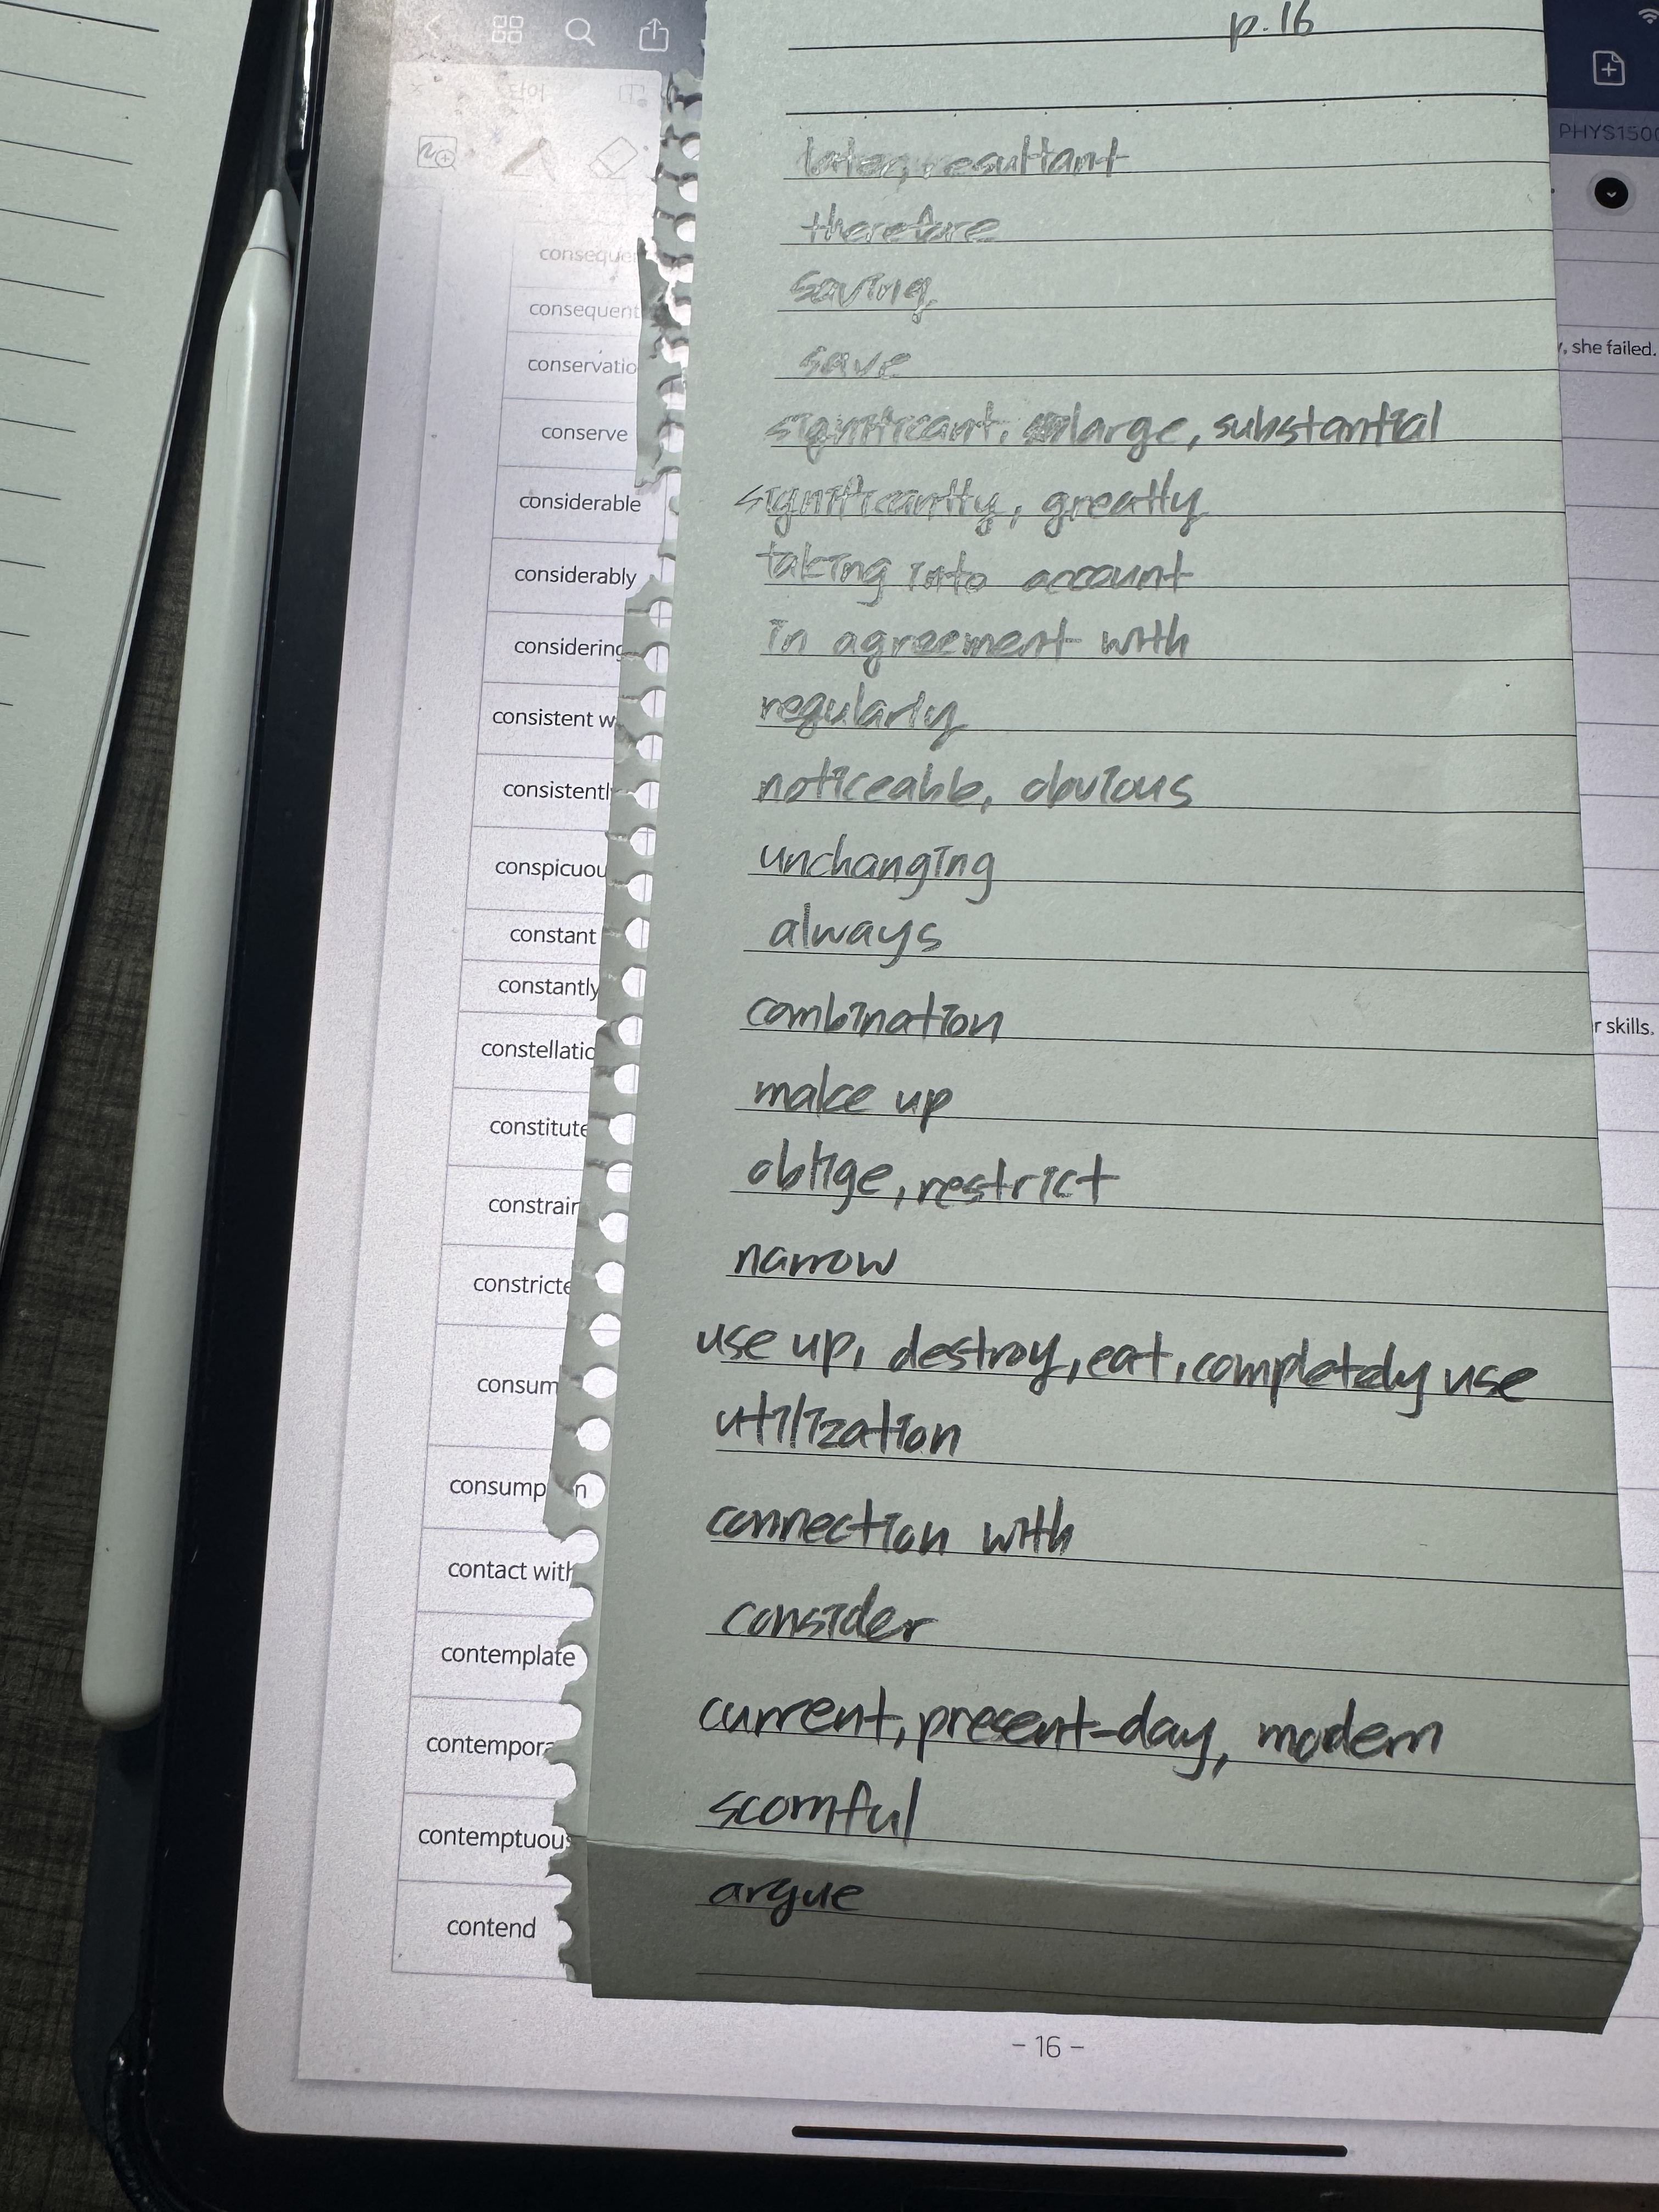 p.16
단어
PHYS150
later, resultant
therefore
conseque
saving
consequent
, she failed.
save
conservatio
significant, large, substantial
conserve
significantly, greatly
considerable
taking into account
considerably
in agreement with
considering
regularly
consistent w
noticeable, obvious
consistentl
unchanging
conspicuou
always
constant
constantly
combination
r skills.
constellatio
make up
constitute
oblige, restrict
constrain
narrow
constricte
use up, destroy, eat, completely use
consum
utilization
consump n
connection with
contact with
consider
contemplate
current, present-day, modern
contempora
scornful
contemptuous
argue
contend
- 16 -